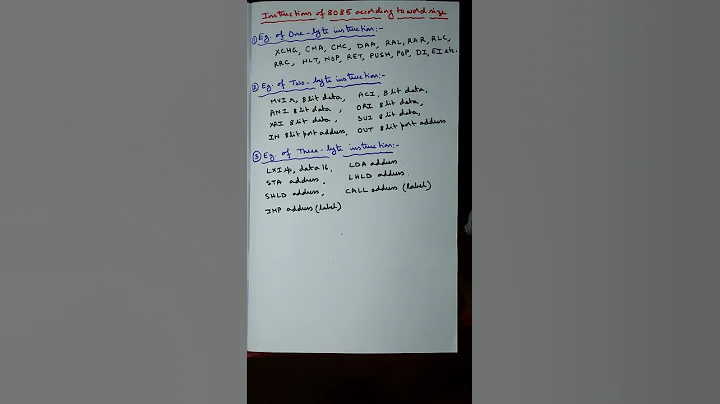 Instructions of 8085 according to word size
① Eg of One-byte instruction:-
XCHG, CMA, CMC, DAA, RAL, RAR, RLC,
RRC, HLT, NOP, RET, PUSH, POP, DI, EI etc.
② Eg. of Two-byte instruction:-
MVI r, 8 bit data, ACI, 8 bit data,
ANI 8 bit data, ORI 8 bit data,
XRI 8 bit data, SUI 8 bit data,
IN 8 bit port address, OUT 8 bit port address
③ Eg of Three-byte instruction:-
LXI rp, data 16, LDA address
STA address, LHLD address.
SHLD address, CALL address (label)
JMP address (label)